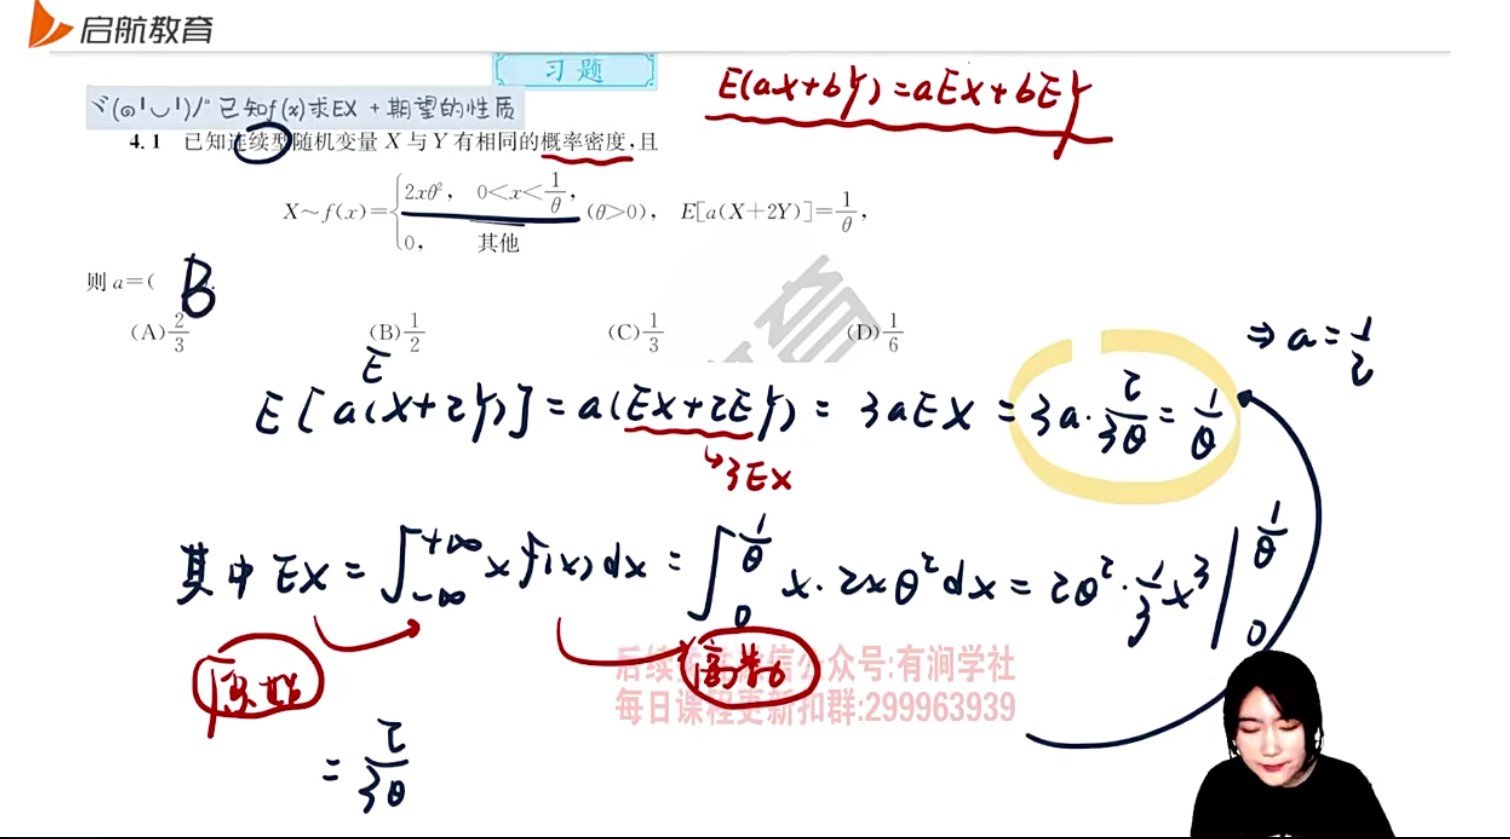 启航教育
习题
E(aX+bY)=aEX+bEY
已知f(x)求EX + 期望的性质
4.1 已知连续型随机变量 X 与 Y 有相同的概率密度,且
X~f(x)={2xθ², 0<x<1/θ, (θ>0), E[a(X+2Y)]=1/θ,
0, 其他
则 a=( B
(A)2/3 (B)1/2 (C)1/3 (D)1/6
⇒ a=1/2
E
E[a(X+2Y)]=a(EX+2EY)=3aEX=3a·2/3θ=1/θ
→3EX
其中 EX=∫_{-∞}^{+∞} x f(x)dx=∫_0^{1/θ} x·2xθ²dx=2θ²·1/3x³|_0^{1/θ}
后续 信公众号:有涧学社
每日课程更新扣群:299963939
=2/3θ